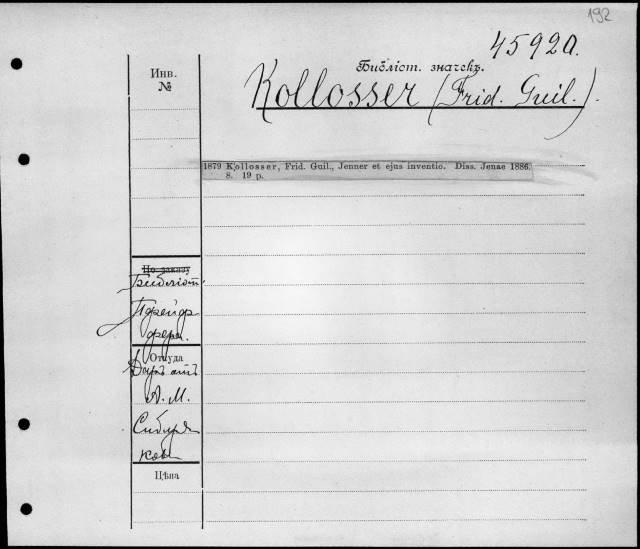 192
45920.
Библіот. значекъ.
Kollosser (Frid. Guil.).
Инв.
№
1879 Kollosser, Frid. Guil., Jenner et ejus inventio. Diss. Jenae 1886.
8. 19 p.
По заказу
Библіот.
Пфейф
фера.
Откуда
Даръ отъ
А. М.
Сибиря
кова
Цѣна